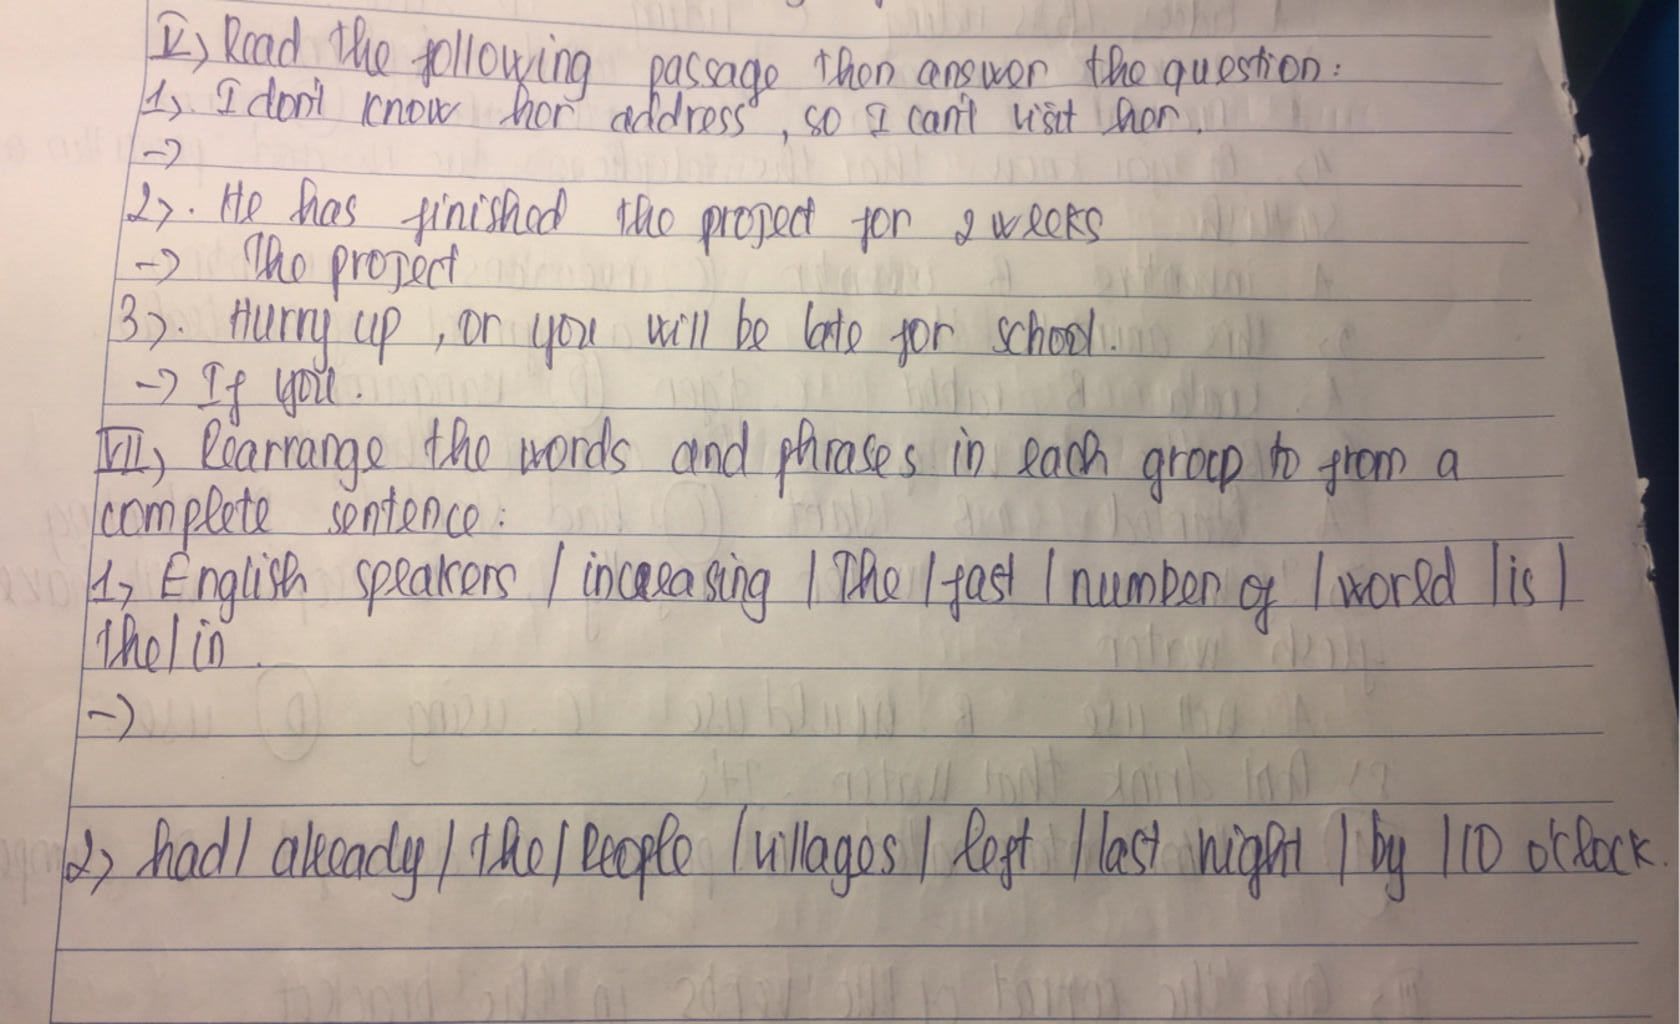 V, Read the following passage then answer the question:
1, I don't know her address, so I can't visit her.
->
2, . He has finished the project for 2 weeks
-> The project
3, . Hurry up, or you will be late for school.
-> If you.
VII, Rearrange the words and phrases in each group to from a
complete sentence:
1, English speakers / increasing / The / fast / number of / world / is /
the / in.
->
2, had / already / the / people / villages / left / last night / by / 10 o'clock.